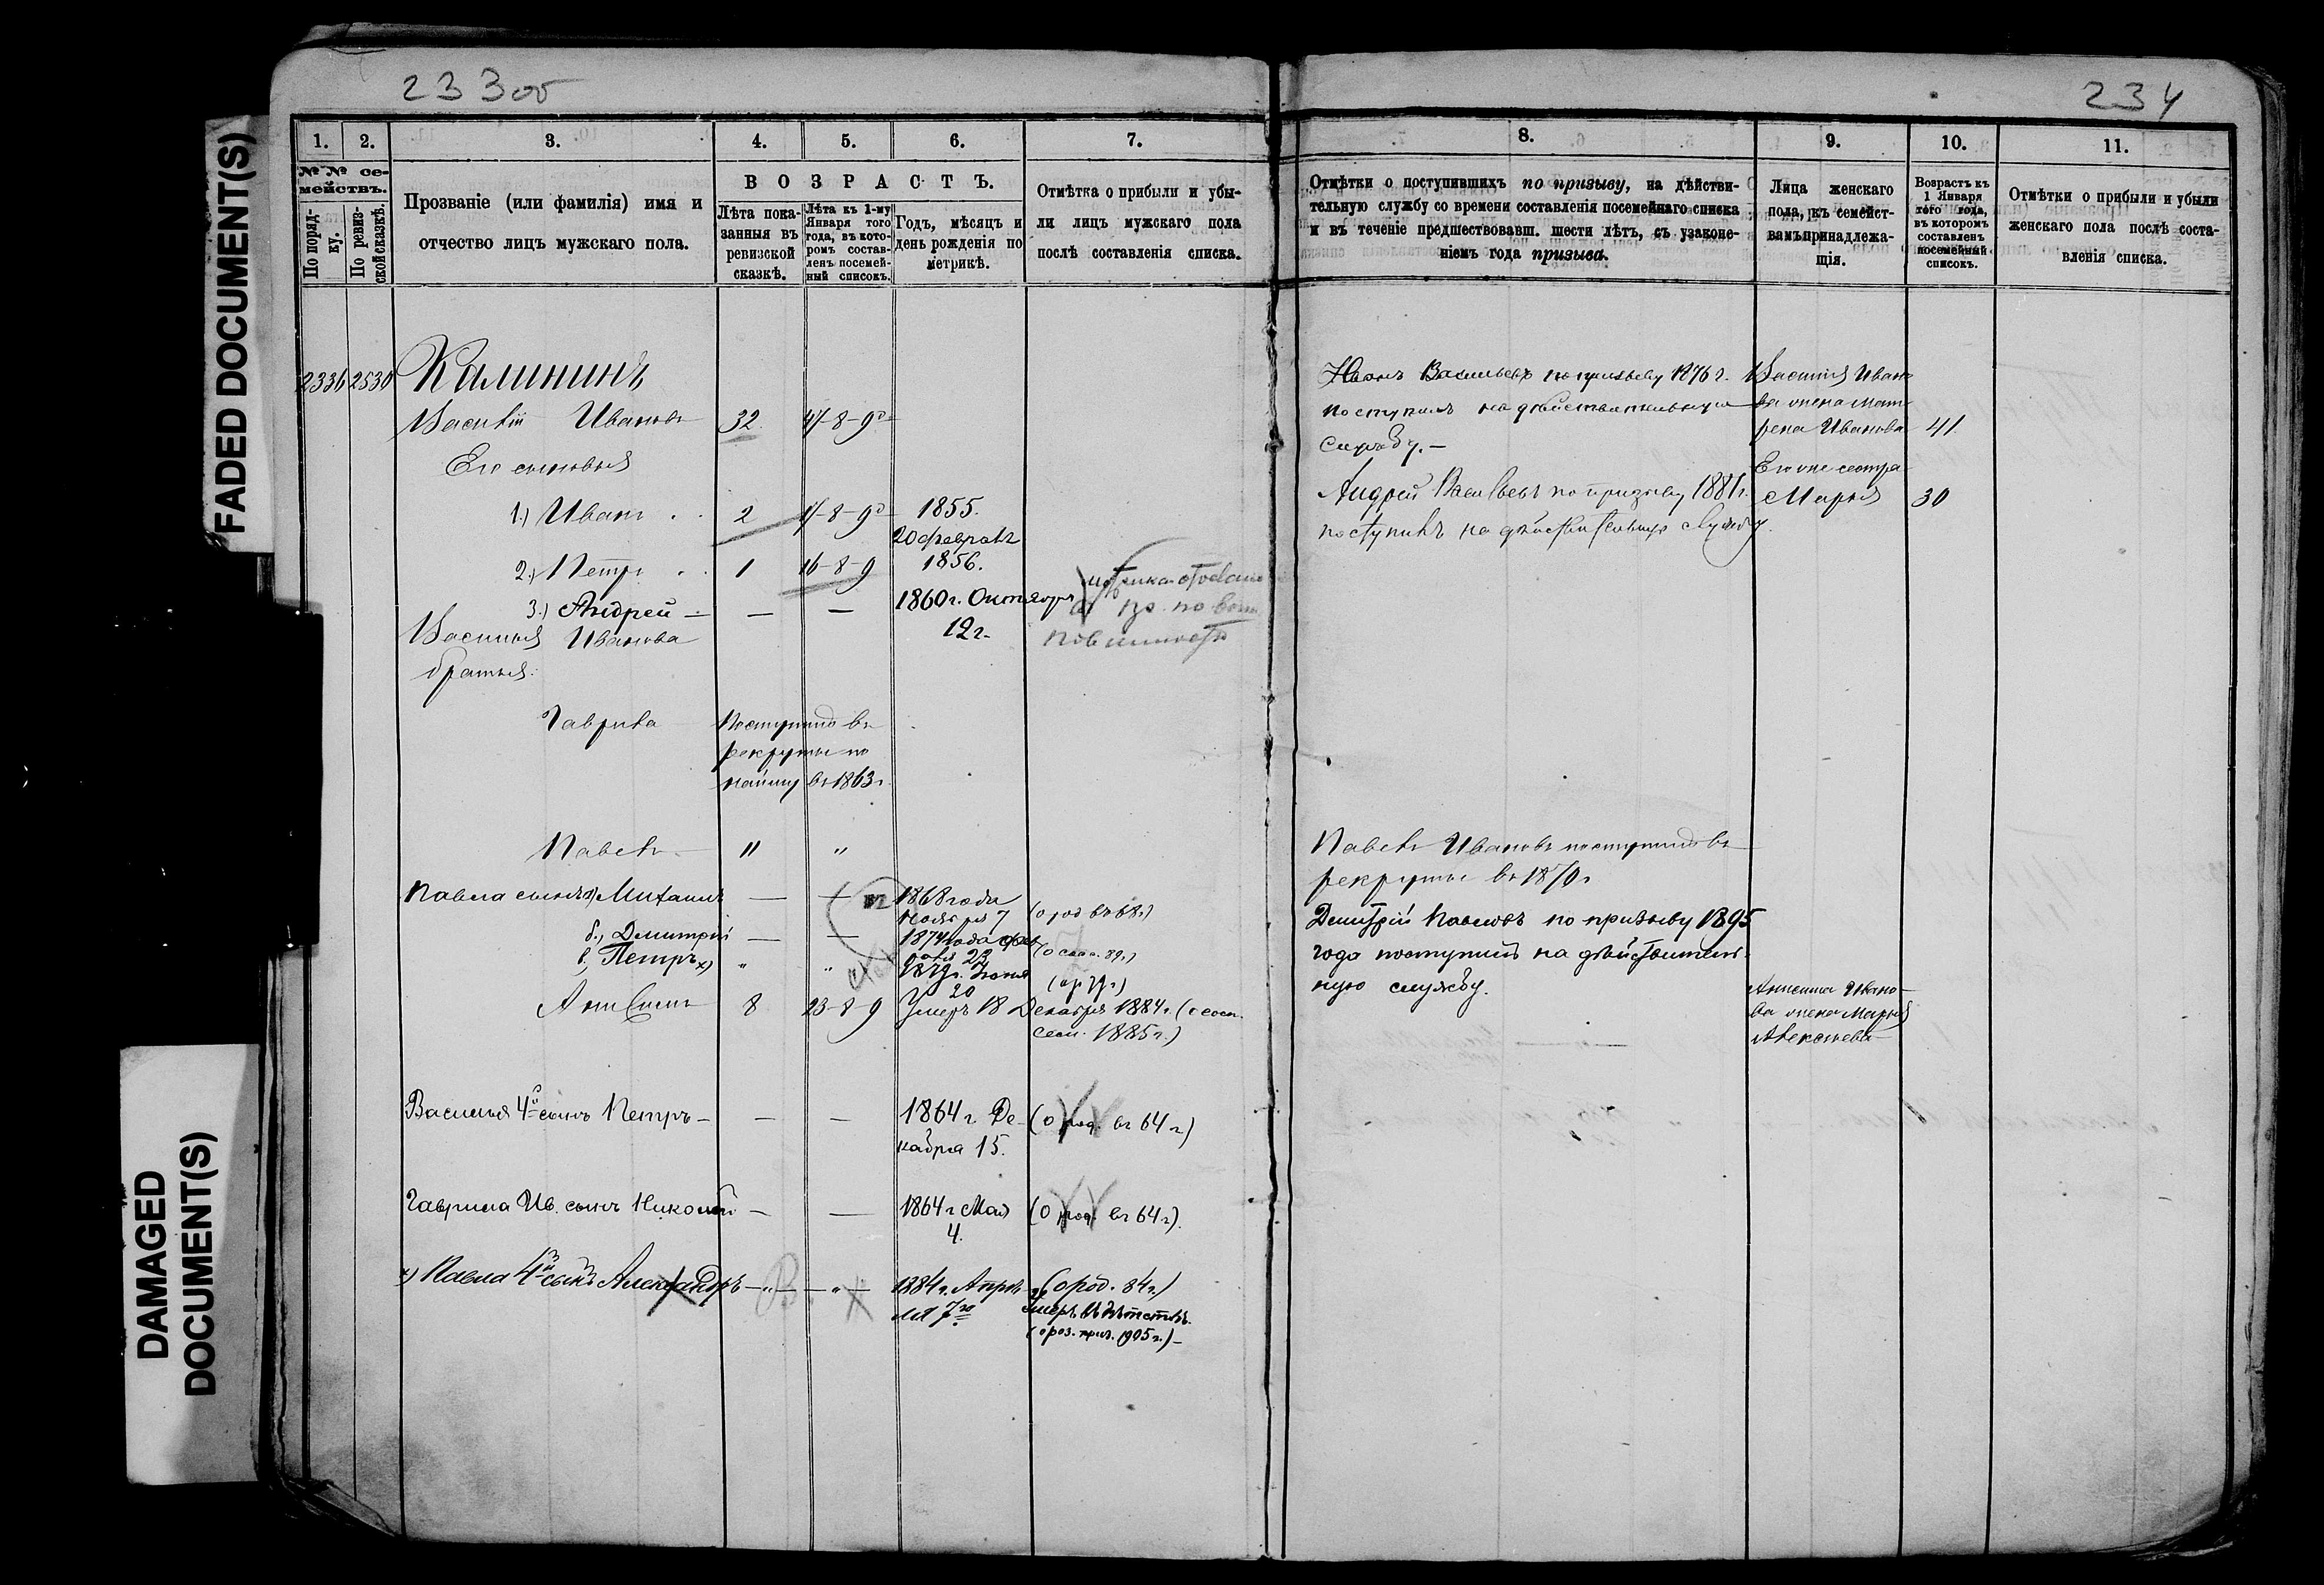 FADED DOCUMENT(S)
DAMAGED
DOCUMENT(S)
233об
1. 2. 3. 4. 5. 6. 7.
№ № се-
мействъ.
По поряд-
ку.
По ревиз-
ской сказкѣ.
Прозваніе (или фамилія) имя и
отчество лицъ мужскаго пола.
ВОЗРАСТЪ.
Лѣта пока-
занныя въ
ревизской
сказкѣ.
Лѣта къ 1-му
Января того
года, въ кото-
ромъ состав-
ленъ посемей-
ный списокъ.
Годъ, мѣсяцъ и
день рожденія по
метрикѣ.
Отмѣтка о прибыли и убы-
ли лицъ мужскаго пола
послѣ составленія списка.
2336 2530 Калининъ
Василій Ивановъ 32 47-8-9
Его сыновья
1.) Иванъ 2 17-8-9 1855.
20 февраля
2.) Петръ 1 16-8-9 1856.
3.) Андрей — — — 1860 г. Октября
12 г.
по воин.
повинности
Василья Иванова
братья:
Гаврила Поступилъ въ
рекруты по
найму въ 1863 г.
Павелъ " "
Павла сынъ а) Михаилъ — — 1868 года
ноября 7 (о род. въ 68 г.)
б., Дмитрій — — 1874 года фев
раля 22
в, Петръ x) " " 1879 г. Іюня
20
Анисимъ 8 23-8-9 Умеръ 18 Декабря 1884 г.
сем. 1885 г.)
Василья 4й сынъ Петръ — — — 1864 г. Де-
кабря 15. (о род. въ 64 г.)
Гаврила Ив. сынъ Николай — — 1864 г. Мая
4. (о род. въ 64 г.).
x) Павла 4й сынъ Александръ — " — — " — 1884 г. Апрѣ-
ля 7го (о род. 84 г.)
Умеръ въ дѣтствѣ.
(о роз. приз. 1905 г.) —
234
8. 9. 10. 11.
Отмѣтки о поступившихъ по призыву, на дѣйстви-
тельную службу со времени составленія посемейнаго списка
и въ теченіе предшествовавш. шести лѣтъ, съ узаконе-
ніемъ года призыва.
Лица женскаго
пола, къ семейст-
вамъ принадлежа-
щія.
Возрастъ къ
1 Января
того года,
въ которомъ
составленъ
посемейный
списокъ.
Отмѣтки о прибыли и убыли
женскаго пола послѣ соста-
вленія списка.
Иванъ Васильевъ по призыву 1876 г.
поступилъ на дѣйствительную
службу. —
Андрей Васильевъ по призыву 1881 г.
поступилъ на дѣйствительную службу.
Василья Ивано-
ва жена Мат-
рена Иванова 41
Его же сестра
Марья 30
Павелъ Ивановъ поступилъ въ
рекруты въ 1870 г
Дмитрій Павловъ по призыву 1895
года поступилъ на дѣйствитель-
ную службу.
Анисима Ивано-
ва жена Марья
Алексѣева